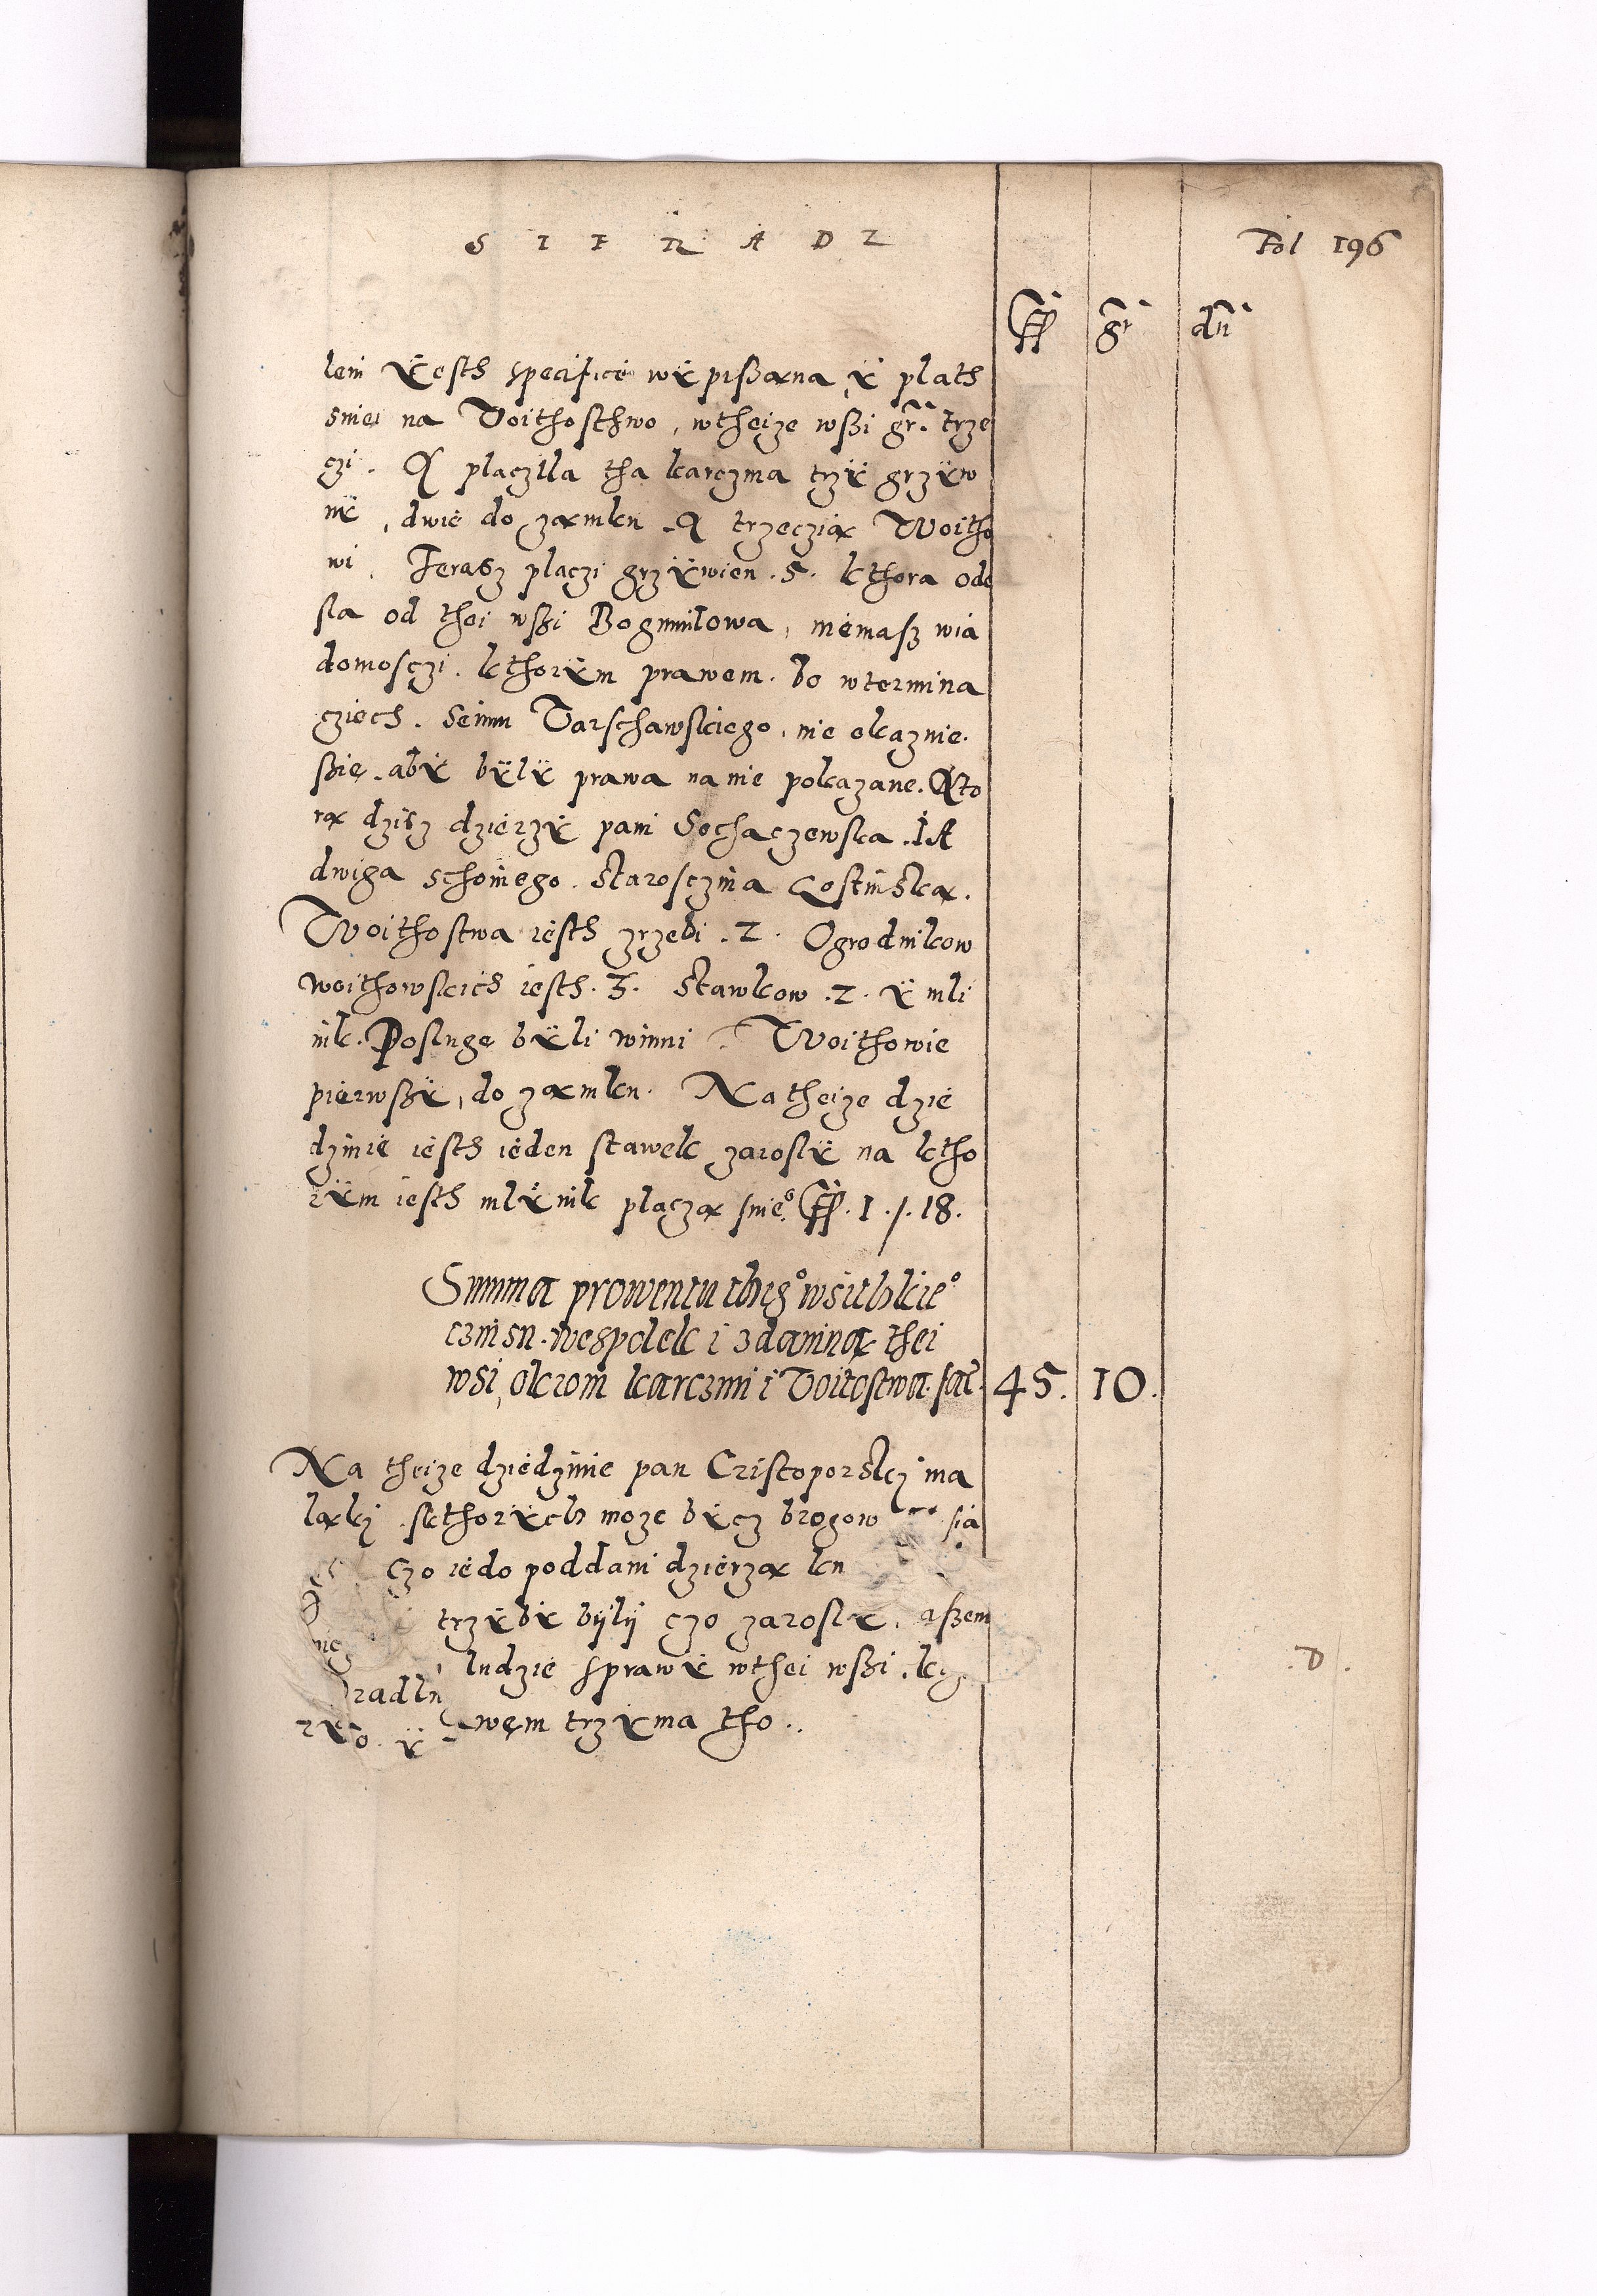 SIERADZ
Fol 196
ff gr dn
lem Ÿesth specifice wÿpißana ÿ plath
snies na Voithosthwo, wtheize wßi gr. trze
czi. A placzlla tha karczma trzÿ grzÿw
nÿ, dwie do zamku. A trzeczią Woitho
wi. Terasz placzi grzÿwien .5. kthora ode
sla od thei wßi Bogumilowa, niemasz wia
domosczi. kthorÿm prawem. bo wtermina
cziech. Seimu Varschawskiego, nie okaznie.
ßię. abÿ bÿlÿ prawa na nie pokazane. Kto
rą dzisz dzierzÿ pani Sochaczewska. IA
dwiga schoinego. Starosczina Gostinska.
Woithostwa iesth zrzebi .2. Ogrodnikow
woithowskich iesth .3. Stawkow .2. ÿ mli
nik. Poslugę bÿli winni. Woithowie
pierwßÿ, do zamku. Na theize dzie
dzinie iesth ieden stawek zaroslÿ na ktho
rÿm iesth mlÿnik placzą snieo ff. 1. /. 18.
Summa prowentu tbugo wsitbkieo
czinsu. wespolek i zdaniną thei
wsi, okrom karczmi i Voitostwa. fac. 45. 10.
Na theize dziedzinie pan Cristoporski ma
ląki. skthorÿch moze bÿcz brogow sia
czo iedo poddani dzierzą ku
trzÿbÿ bÿlÿ czo zaroslÿ. aszem
nię ludzie sprawÿ wthei wßi. k
radln
rÿ o. ÿ wem trzÿma tho..
D